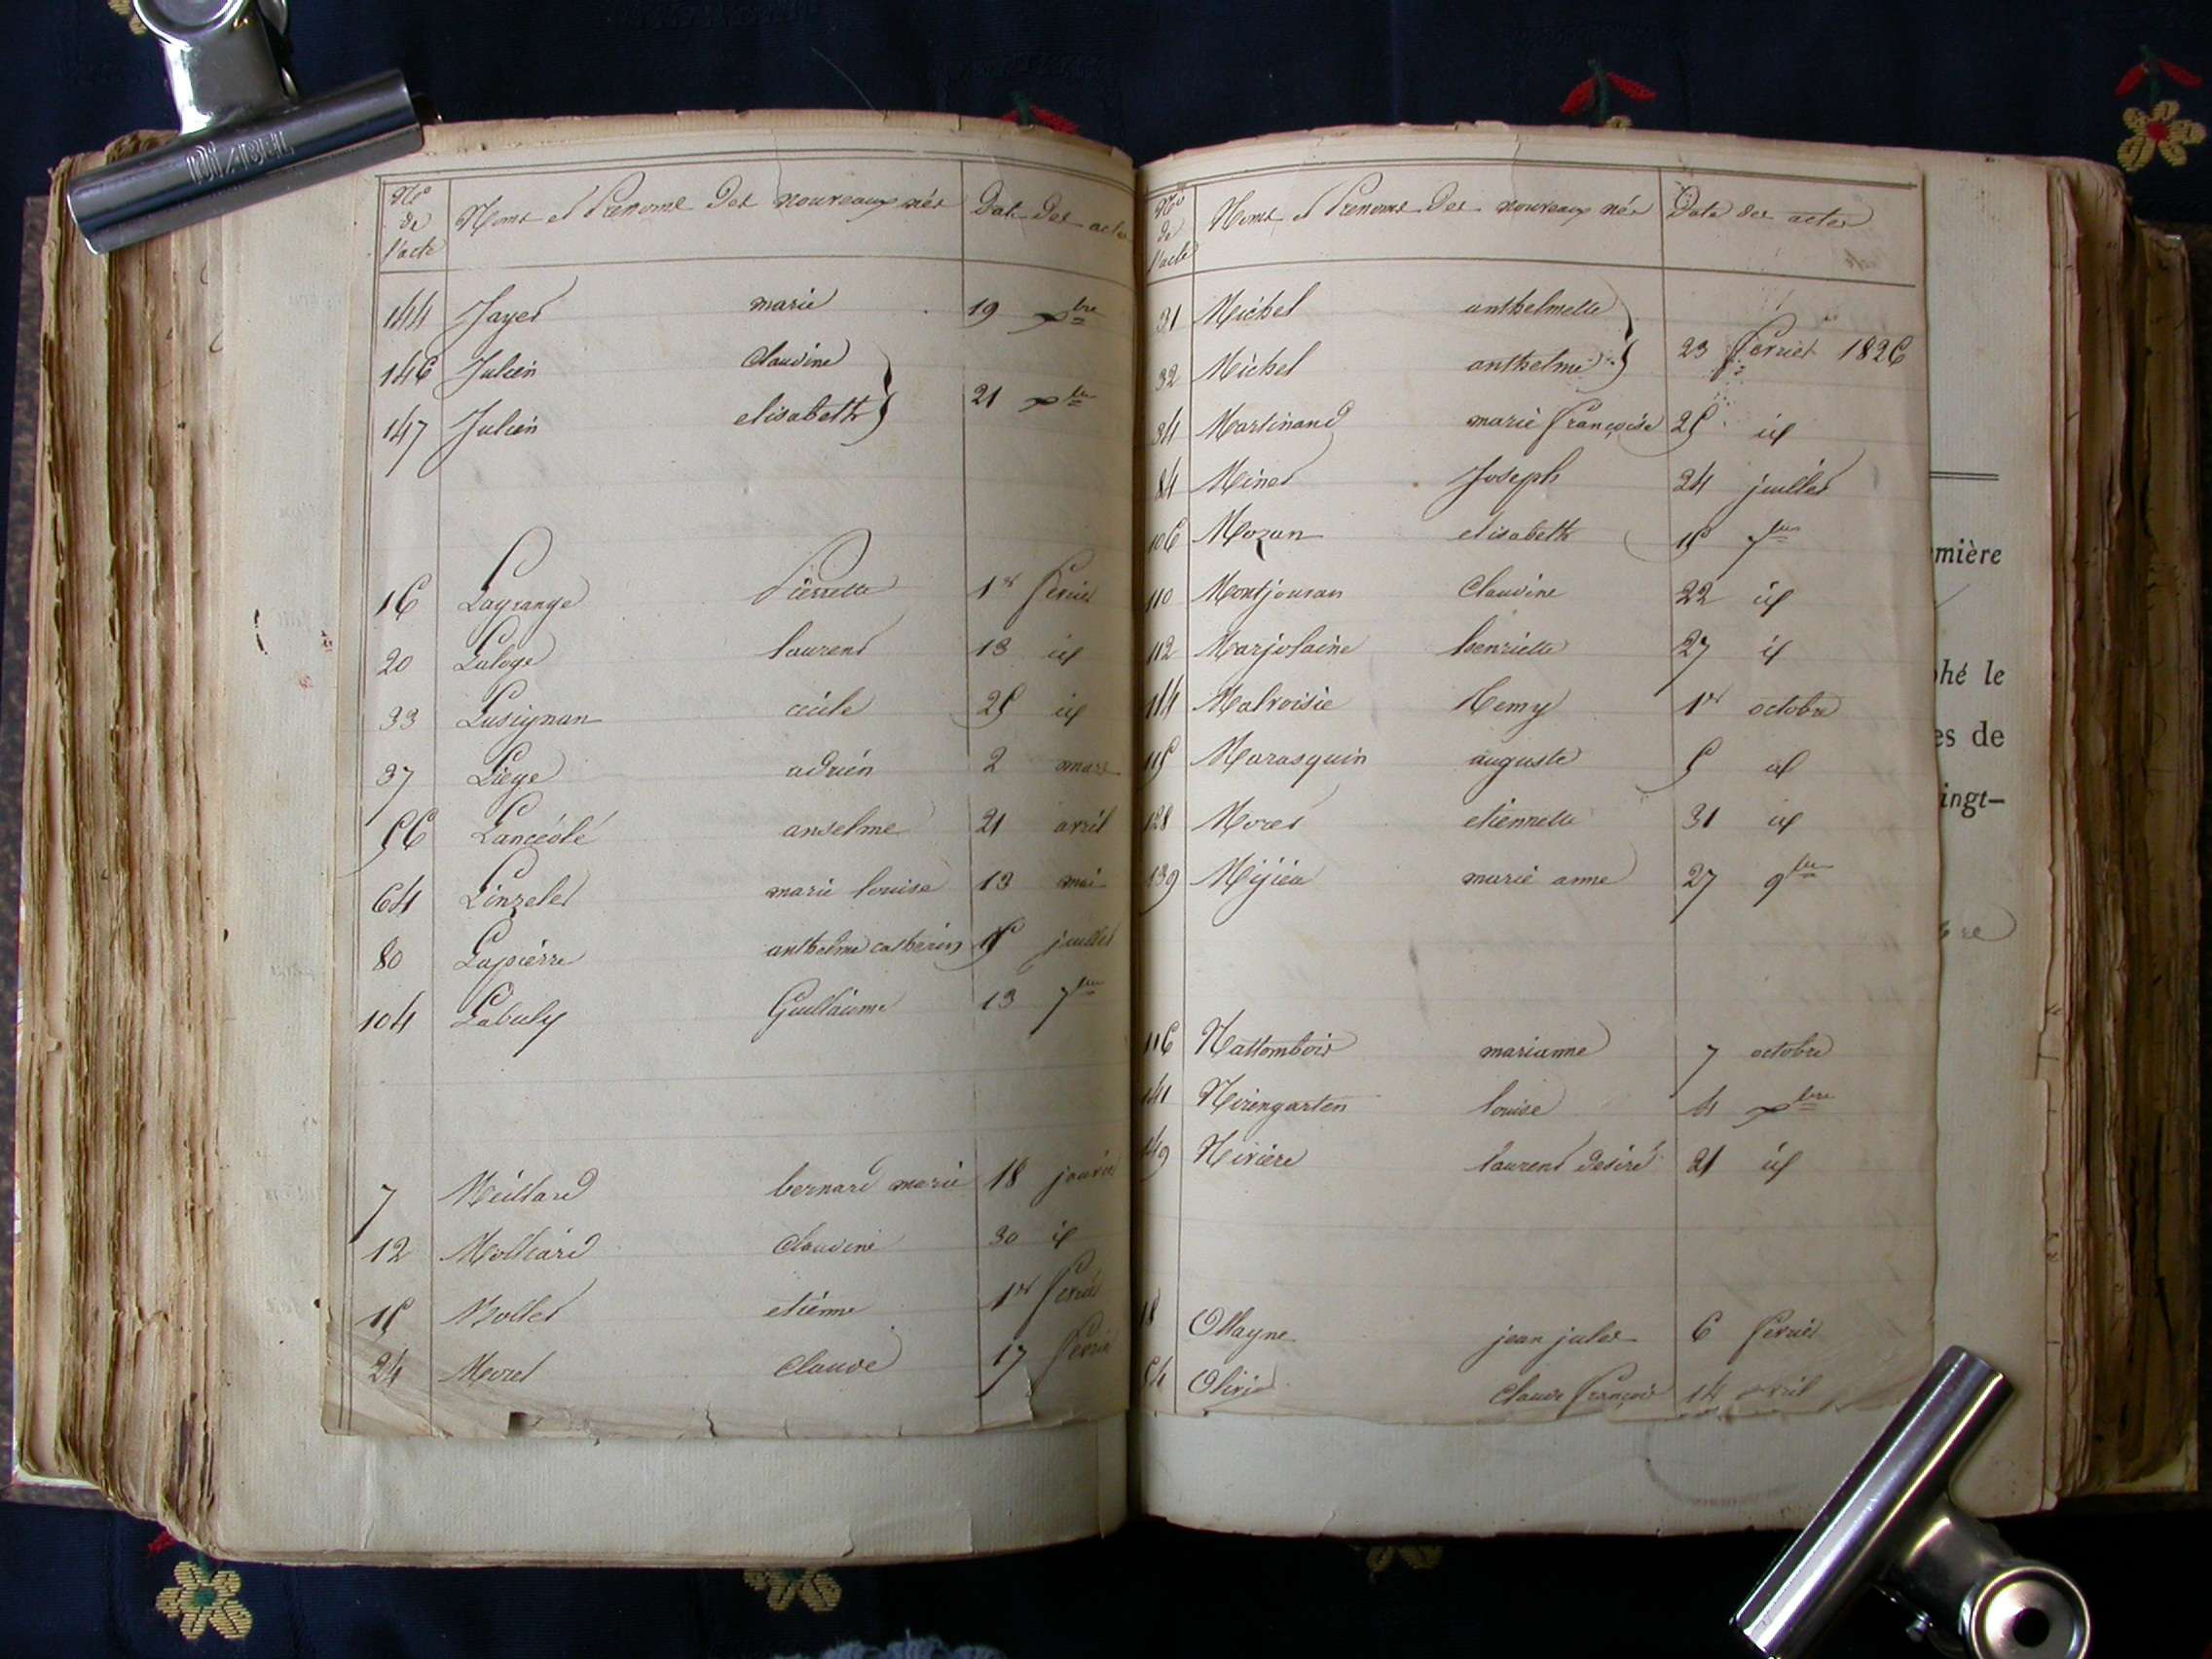 DIZABEL
No de l'acte Noms et Prenoms Des nouveaux nés Date Des actes
144 Jayet marie 19 xbre
146 Julien Claudine
147 Julien elisabeth } 21 xbre
16 Lagrange Pierrette 1er fevrier
20 Laloge laurent 13 id
33 Lusignan cécile 25 id
37 Liège adrien 2 mars
56 Lancéolé anselme 21 avril
64 Linzelet marie louise 13 mai
80 Lapierre anthelme catherin 15 juillet
104 Labuly Guillaume 13 7bre
7 Meillard bernard marie 18 janvier
12 Molliard Claudine 30 id
15 Mollet etienne 1er fevrier
24 Morel Claude 17 fevrier
No de l'acte Noms et Prenoms Des nouveaux nés Date des actes
31 Michel anthelmette
32 Michel anthelme } 23 fevrier 1826
34 Martinand marie françoise 25 id
84 Minet Joseph 24 juillet
106 Mozan elisabeth 15 7bre
110 Montjouvan Claudine 22 id
112 Marjolaine henriette 27 id
114 Malvoisie Remy 1er octobre
115 Marasquin auguste 5 id
128 Moret etiennette 31 id
139 Mijieu marie anne 27 9bre
116 Nattombois marianne 7 octobre
141 Nirengarten louise 4 xbre
149 Nivière laurent desiré 21 id
18 Ollagne jean jules 6 fevrier
54 Olivier Claude françois 14 avril
mière
phé le
es de
ingt-